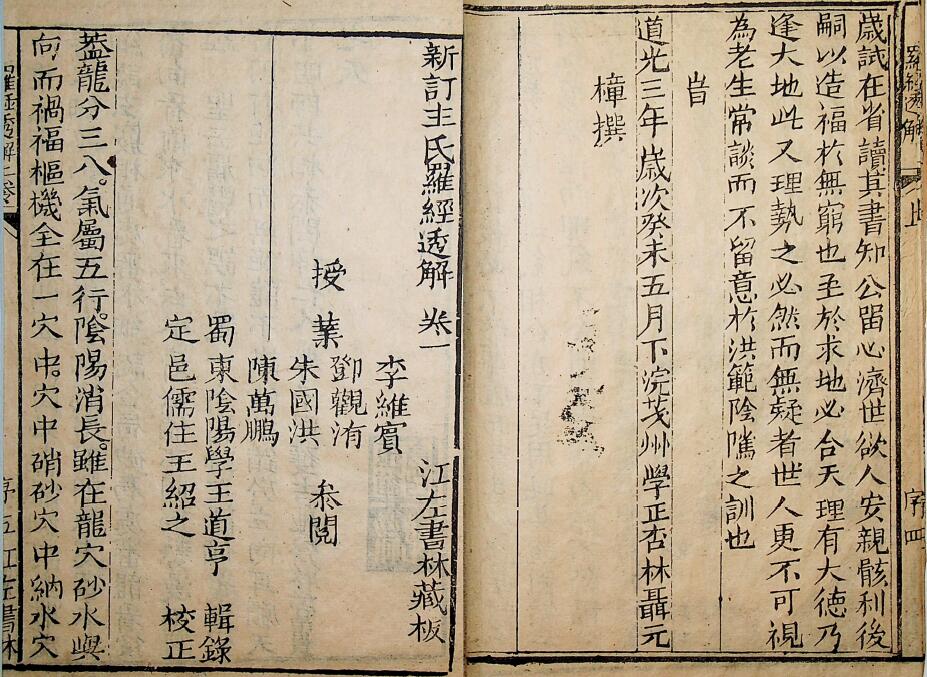 羅經透解
序四
歲試在省讀其書知公畱心濟世欲人安親骸利後
嗣以造福於無窮也至於求地必合天理有大徳乃
逢大地此又理勢之必然而無疑者世人更不可視
為老生常談而不留意於洪範陰隲之訓也
旹
道光三年歲次癸未五月下浣茂州學正杏林聶元
樟撰
新訂王氏羅經透解 卷一 江左書林藏板
李維賓
授業 鄧觀洧 叅閲
朱國洪
陳萬鵬
蜀東陰陽學王道亨 輯錄
定邑儒住王紹之 校正
葢龍分三八。氣屬五行。陰陽消長。雖在龍穴砂水與
向而禍福樞機全在一穴中。穴中硝砂穴中納水穴
羅經透解
序五 江左書林